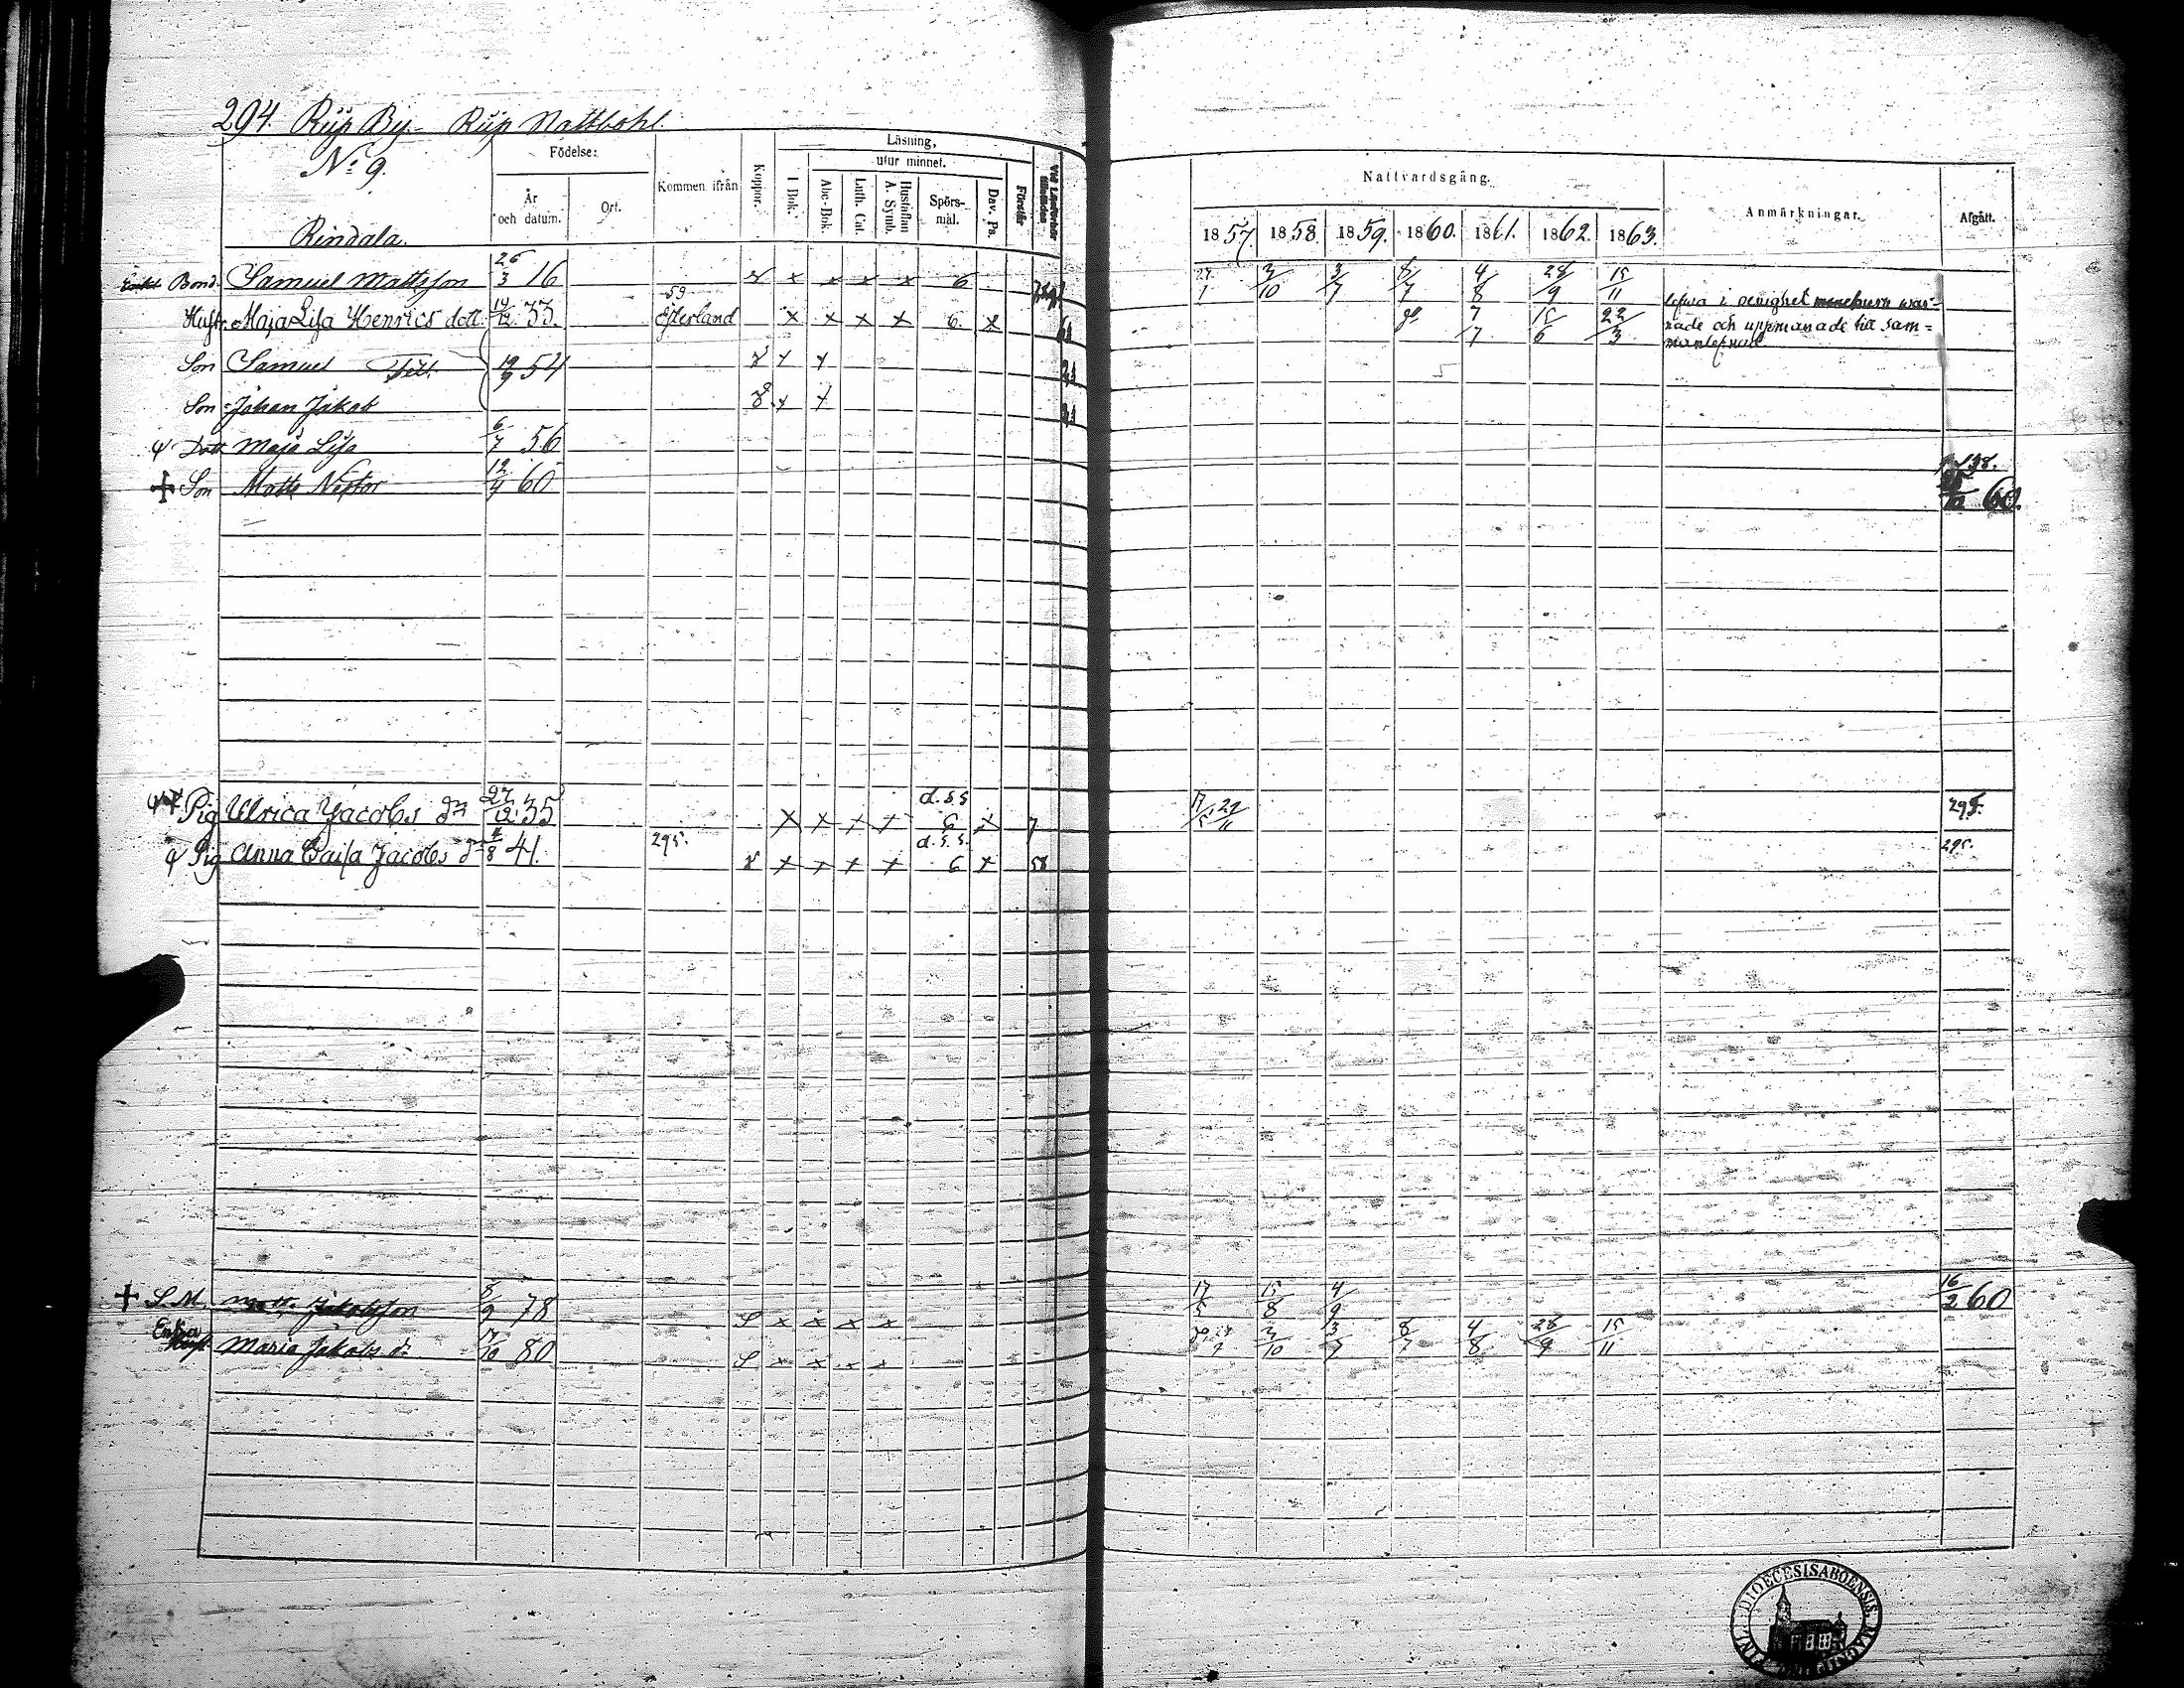 294. Rüp By. Rüp Nattbohl.
No 9.
Rindala.
Födelse:
År och datum.
Ort.
Kommen ifrån
Koppor.
Läsning,
I Bok.
utur minnet.
Abc-Bok.
Luth. Cat.
Hustaflan A. Symb.
Spörs-mål.
Dav. Ps.
Förstår
Nattvardsgång.
1857. 1858. 1859. 1860. 1861. 1862. 1863.
Anmärkningar.
Afgått.
Bond. Samuel Mattsson 26/3 16 x x x x 6 27/1 2/10 3/7 8/7 4/8 28/9 15/11 lefwa i oenighet war-
Hustr. Maja Lisa Henrics dott. 14/12 33. 59 Efterland x x x x 6. x 61 7/7 15/6 22/3 nade och uppmanade till sam=
manlefnad
Son Samuel 19/9 54 x x
Son Johan Jakob x x
Dott Maja Lisa 6/7 56 138.
+ Son Matts Nestor 12/4 60 60.
Pig Ulrica Jacobs dr 27/12 35 d.s.s 6 x x x x x 7 29/11 295.
Pig Anna Caisa Jacobs dr 8 41. 295. x x x x d.s.s. 6 x 58 295.
+ S.M. Matts Jakobsson 8/9 78 S x x x x 17/5 15/8 4/9 16/2 60
Enka Maria Jakobs dr 17/10 80 S x x x x 2/10 3/7 8/7 4/8 28/9 15/11
DIOECESIS ABOENSIS